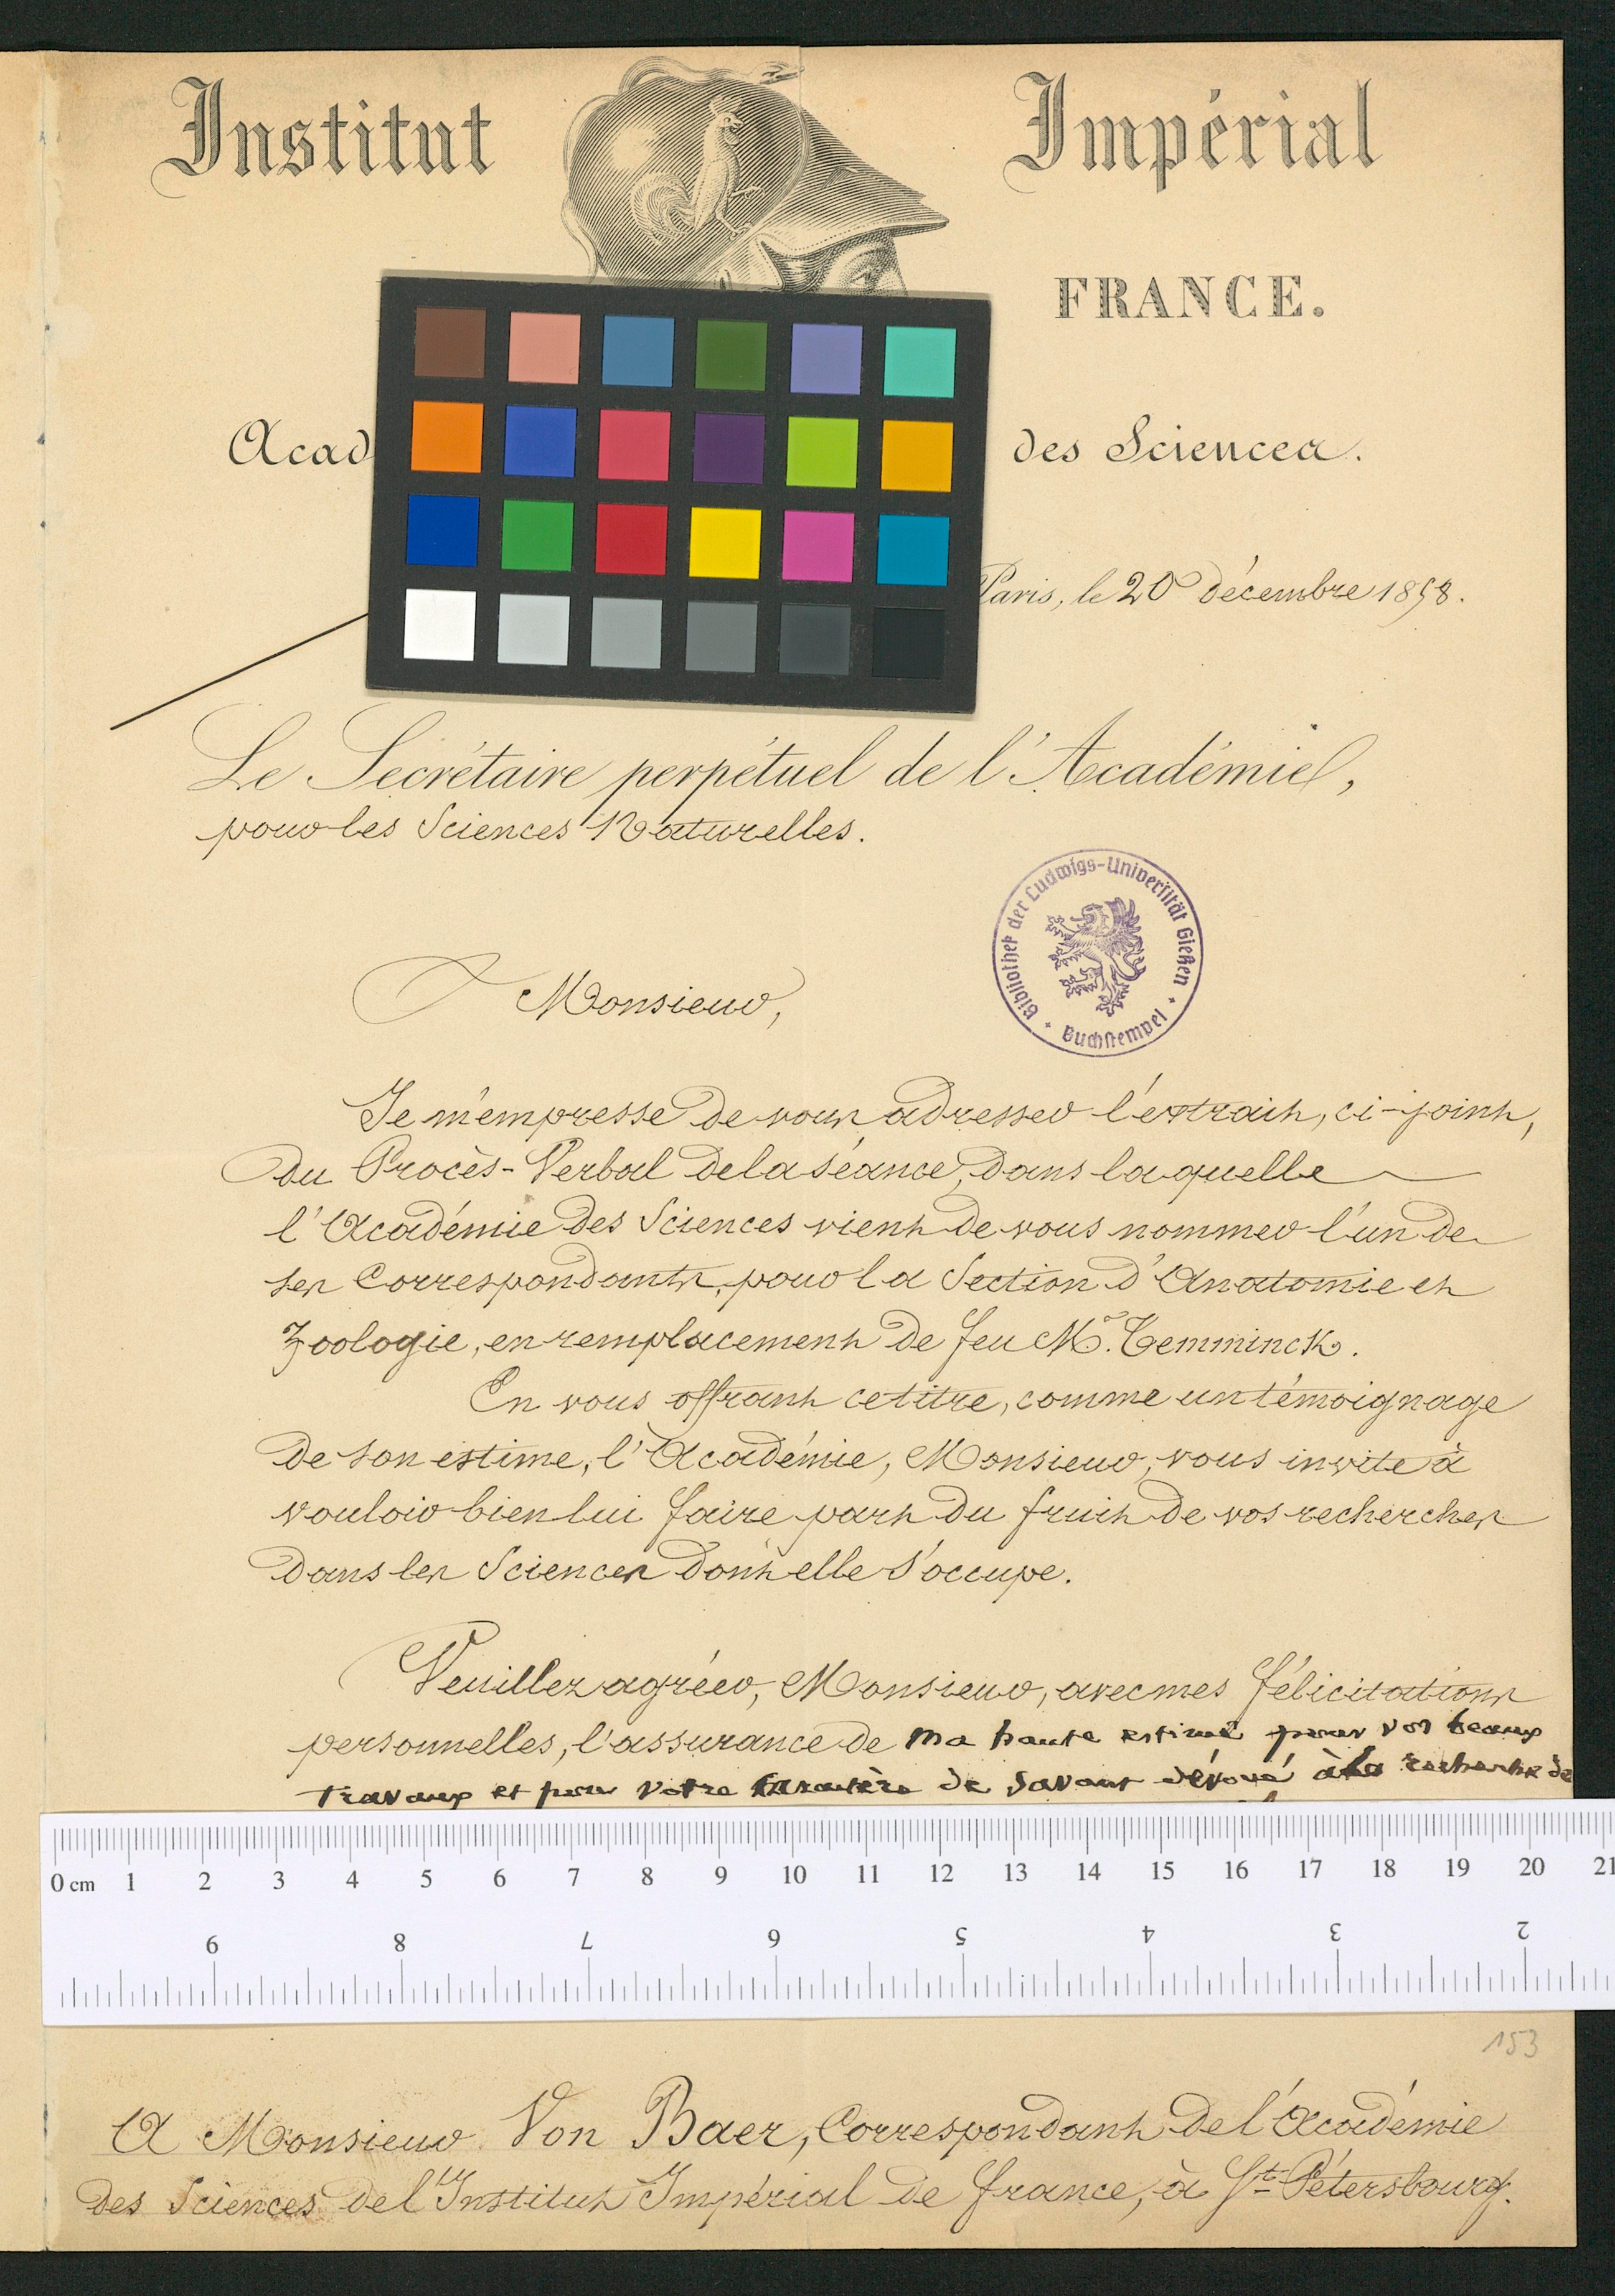 Institut Impérial
FRANCE.
Acad des Sciences.
Paris, le 20 décembre 1858.
Le Secrétaire perpétuel de l'Académie,
pour les Sciences Naturelles.
Bibliothek der Ludwigs-Universität Gießen
Buchstempel
Monsieur,
Je m'empresse de vous adresser l'extrait, ci-joint,
du Procès-Verbal de la séance, dans laquelle
l'Académie des Sciences vient de vous nommer l'un de
ses Correspondants, pour la Section d'Anatomie et
Zoologie, en remplacement de feu Mr. Temminck.
En vous offrant ce titre, comme un témoignage
de son estime, l'Académie, Monsieur, vous invite à
vouloir bien lui faire part du fruit de vos recherches
dans les Sciences dont elle s'occupe.
Veuillez agréer, Monsieur, avec mes félicitations
personnelles, l'assurance de ma haute estime pour vos beaux
travaux et pour votre caractère de savant dévoué à la recherche de
0 cm 1 2 3 4 5 6 7 8 9 10 11 12 13 14 15 16 17 18 19 20 21
9 8 7 6 5 4 3 2
153
A Monsieur Von Baer, Correspondant de l'Académie
des Sciences de l'Institut Impérial de France, à St. Pétersbourg.